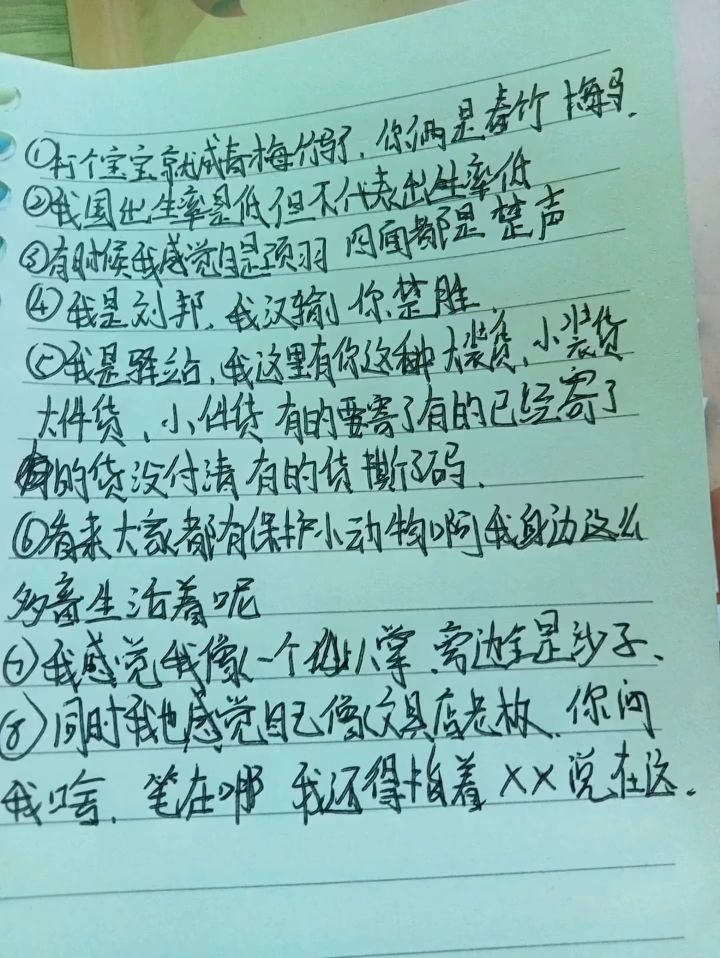 ①打个宝宝就成青梅竹马了，你俩是春竹梅马.
②我国出生率是低但不代表出生率低
③有时候我感觉自是项羽 四面都是楚声
④我是刘邦，我汉输你楚胜.
⑤我是驿站，我这里有你这种大装货，小装货
大件货，小件货 有的要寄了有的已经寄了
有的货没付清 有的货撕了码.
⑥看来大家都有保护小动物啊我身边这么
多畜生活着呢
⑦我感觉我像一个掌 旁边全是沙子、
⑧同时我也感觉自己像文具店老板. 你问
我啥. 笔在哪 我还得指着 XX 说在这.